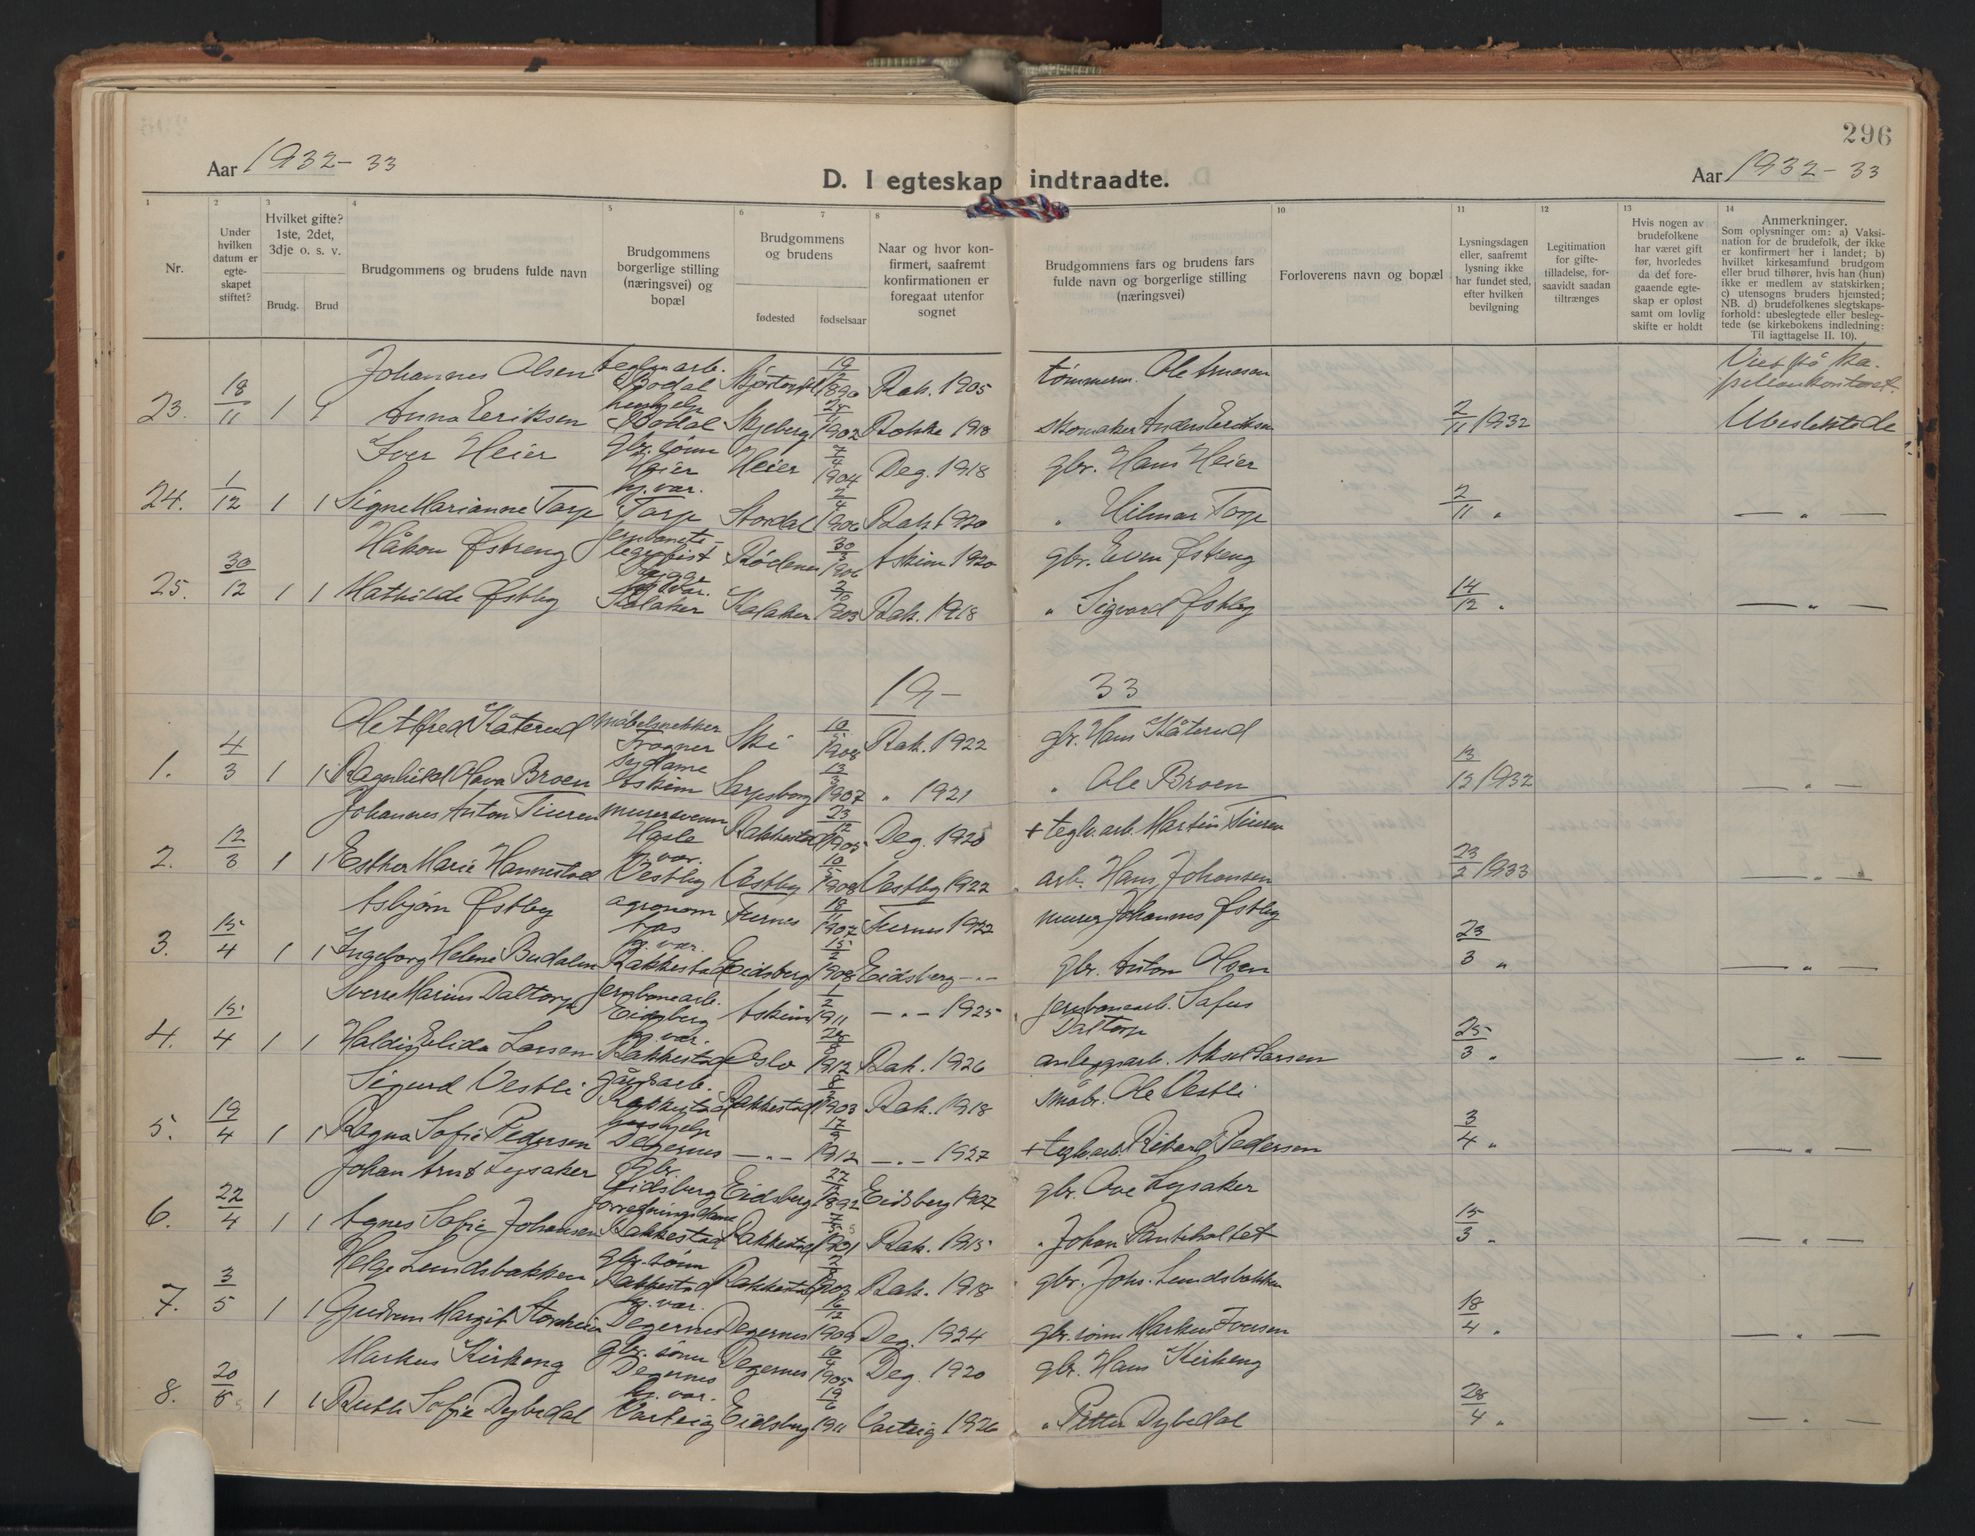 296
Aar 1932-33
D. I egteskap indtraadte.
Aar 1932-33
1 2 3 4 5 6 7 8 10 11 12 13 14
Nr.
Under hvilken datum er egte-skapet stiftet?
Hvilket gifte? 1ste, 2det, 3dje o. s. v.
Brudg. Brud
Brudgommens og brudens fulde navn
Brudgommens borgerlige stilling (næringsvei) og bopæl
Brudgommens og brudens
fødested fødselsaar
Naar og hvor kon-firmert, saafremt konfirmationen er foregaat utenfor sognet
Brudgommens fars og brudens fars fulde navn og borgerlige stilling (næringsvei)
Forloverens navn og bopæl
Lysningsdagen eller, saafremt lysning ikke har fundet sted, efter hvilken bevilgning
Legitimation for gifte-tilladelse, for-saavidt saadan tiltrænges
Hvis nogen av brudefolkene har været gift før, hvorledes da det fore-gaaende egte-skap er opløst samt om lovlig skifte er holdt
Anmerkninger.
Som oplysninger om: a) Vaksi-nation for de brudefolk, der ikke er konfirmert her i landet; b) hvilket kirkesamfund brudgom eller brud tilhører, hvis han (hun) ikke er medlem av statskirken; c) utensogns bruders hjemsted; NB. d) brudefolkenes slegtskaps-forhold: ubeslegtede eller besleg-tede (se kirkebokens indledning: Til iagttagelse II. 10).
Johannes Olsen 1890 Rak. 1905 tømmerm. Ole Arnesen Viet på ka-pellankontoret.
23. 18/11 1 1 Anna Eriksen Bodal Skjeberg 1902 Rokke 1918 skomaker Anders Eriksen 2/11 1932 Ubeslektede
Iver Heier gbr. sønn Heier Heier 1904 Deg. 1918 gbr. Hans Heier
24. 1/12 1 1 Signe Marianne Torp hj. vær. Torp Stordal 2/4 1906 Rak. 1920 " Hilmar Torp 2/11 " — " —
Håkon Østreng Rødenes 1906 Askim 1920 gbr. Even Østreng
25. 30/12 1 1 Mathilde Østby Kålaker Kalaker 1903 Rak. 1918 " Sigvard Østby 14/12 " — " —
19- 33
Ole Alfred Kåterud møbelsnekker Frogner Ski 1908 Rak. 1922 gbr. Hans Kåterud
1. 4/3 1 1 Ragnhild Olava Broen sydame Askim Sarpsborg 1907 " 1921 " Ole Broen 13/12 1932 — " —
Johannes Anton Tieren murersvenn Hasle Rakkestad 23/12 1905 Deg. 1920 + teglv. arb. Martin Tieren
2. 12/3 1 1 Esther Marie Hannestad hj. vær. Vestby Vestby 10/5 1908 Vestby 1922 arb. Hans Johansen 23/2 1933 — " —
Asbjørn Østby agronom Ås 18/11 1907 1922 murer Johannes Østby
3. 15/4 1 1 Ingeborg Helene Budalen hj. vær. Rakkestad Eidsberg 15/2 1908 Eidsberg — " — gbr. Anton Olsen 23/3 " — " —
Sverre Marius Daltorp jernbanearb. Eidsberg Askim 1/2 1911 — " — 1925 jernbanearb. Safus Daltorp
4. 15/4 1 1 Haldis Elida Larsen hj. vær. Rakkestad Oslo 1912 Rak. 1926 anleggsarb. Aksel Larsen 25/3 " — " —
Sigurd Vestli gårdsarb. Rakkestad Rakkestad 1903 Rak. 1918 småbr. Ole Vestli
5. 19/4 1 1 Ragna Sofie Pedersen hushjelp Degernes — " — 1912 — " — 1927 + teglv. arb. Rikard Pedersen 3/4 " — " —
Johan Arnt Lysaker gbr. Eidsberg Eidsberg 1892 Eidsberg 1907 gbr. Ove Lysaker
6. 22/4 1 1 Agnes Sofie Johansen forretningsdame Rakkestad Rakkestad 1901 Rak. 1915 " Johan 15/3 " — " —
Helge Lundsbakken gbr. sønn Rakkestad Rakkestad 1903 Rak. 1918 gbr. Johs. Lundsbakken
7. 3/5 1 1 Gudrun Margit hj. vær. Degernes Degernes 16/12 1909 Deg. 1924 gbr. sønn Markus Iversen 18/4 " — " —
Markus Kirkeng gbr. sønn Degernes Degernes 10/4 1905 Deg. 1920 gbr. Hans Kirkeng
8. 20/5 1 1 Ruth Sofie Dybedal hj. vær. Varteig Eidsberg 19/6 1911 Varteig 1926 " Petter Dybedal 28/4 " — " —